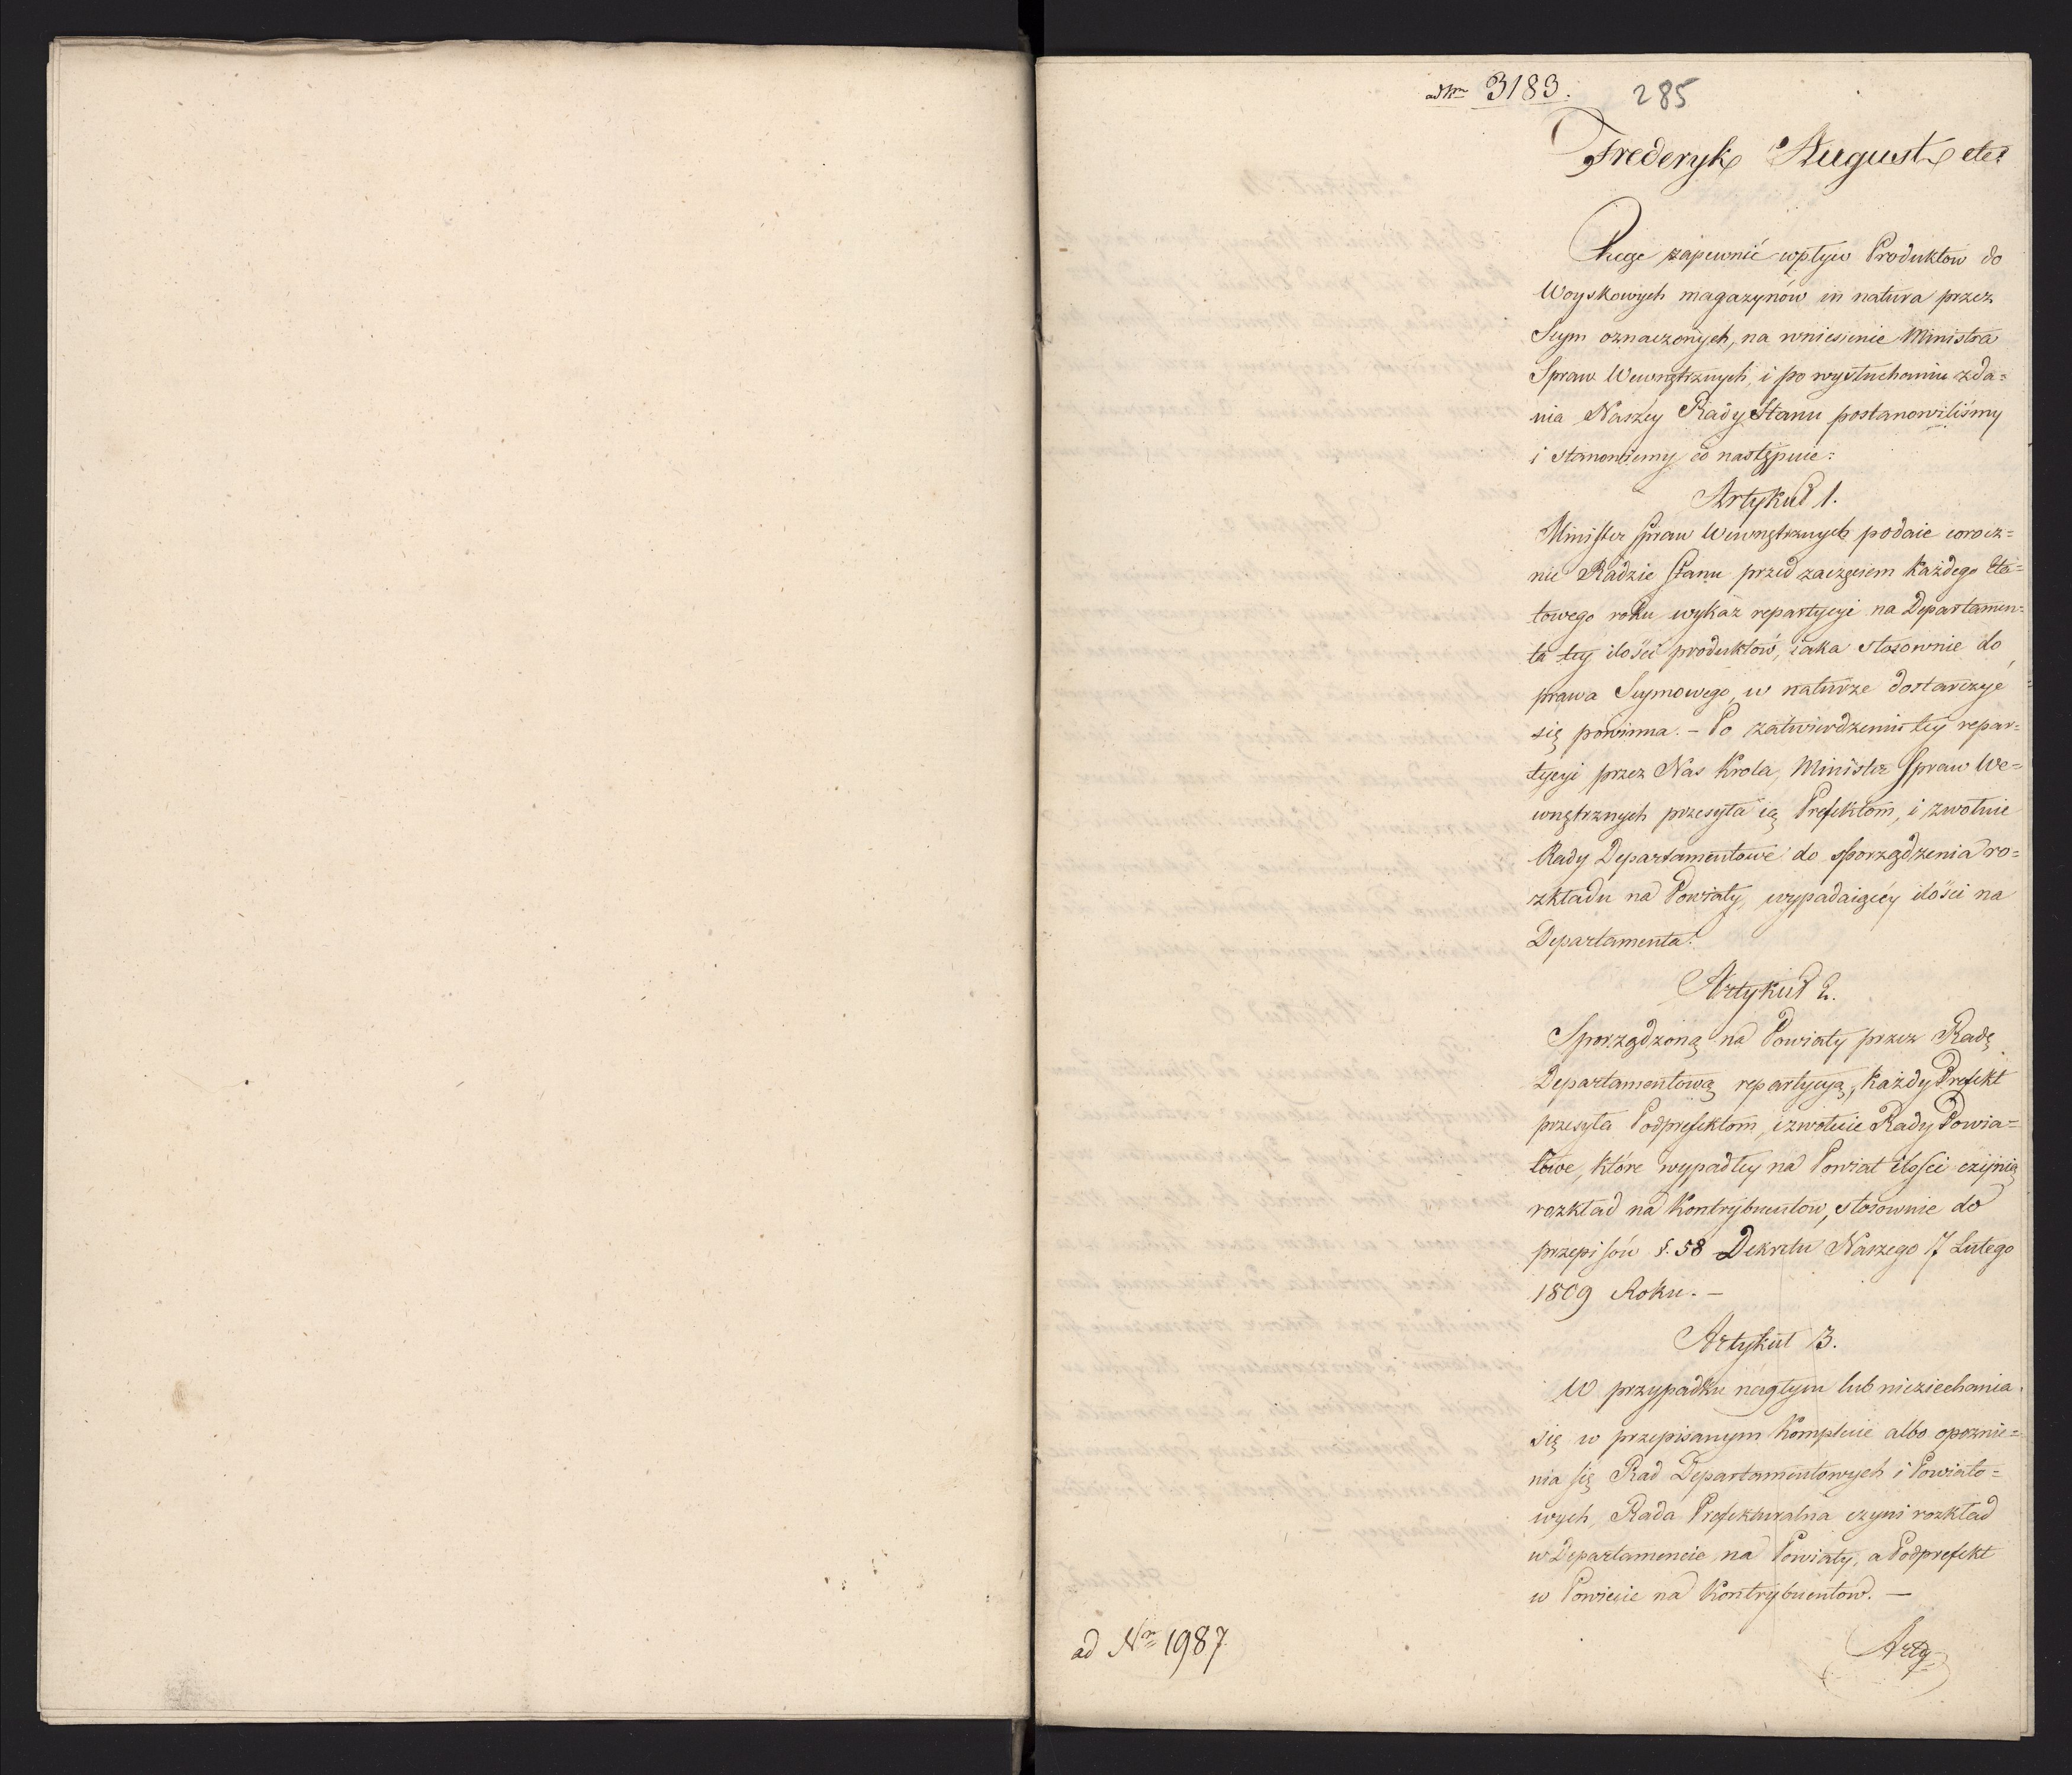 ad Nrm 3183.
285
Frederyk August etc:
Chcąc zapewnić wpływ Produktow do
Woyskowych magazynów in natura przez
Seym oznaczonych, na wniesienie Ministra
Spraw Wewnętrznych, i po wysłuchaniu zda=
nia Naszey Rady Stanu postanowiliśmy
i stanowiemy co następuie:
Artykuł 1.
Minister Spraw Wewnętrznych podaie corocz=
nie Radzie Stanu przed zaczęciem każdego Eta=
towego roku wykaz repartycyi na Departamen=
ta tey ilości produktów, iaka stosownie do
prawa Seymowego, w naturze dostarczyć
się powinna. – Po zatwierdzeniu tey repar=
tycyi przez Nas Krola, Minister Spraw We=
wnętrznych przesyła ią Prefektom, i zwołuie
Rady Departamentowe do sporządzenia ro=
zkładu na Powiaty, wypadaiącéy ilości na
Departamenta.
Artykuł 2.
Sporządzoną na Powiaty przez Radę
Departamentową repartycyą, każdy Prefekt
przesyła Podprefektom, i zwołuie Rady Powia=
towe, które wypadłey na Powiat ilości czynią
rozkład na Kontrybuentów, stosownie do
przepisów §. 58 Dekretu Naszego 7 Lutego
1809 Roku. –
Artykuł 3.
W przypadku nagłym lub nieziechania
się w przepisanym Komplecie albo opoznie=
nia się Rad Departamentowych i Powiato=
wych, Rada Prefekturalna czyni rozkład
w Departamencie na Powiaty, a Podprefekt
w Powiecie na Kontrybuentow. —
Arty=
ad Nrm 1987.